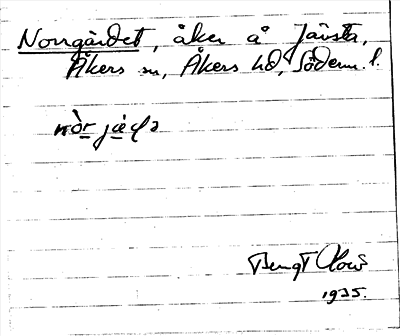 Norrgärdet, åker å Järsta,
Åkers sn, Åkers hd, Söderm. l.
Bengt
1935.